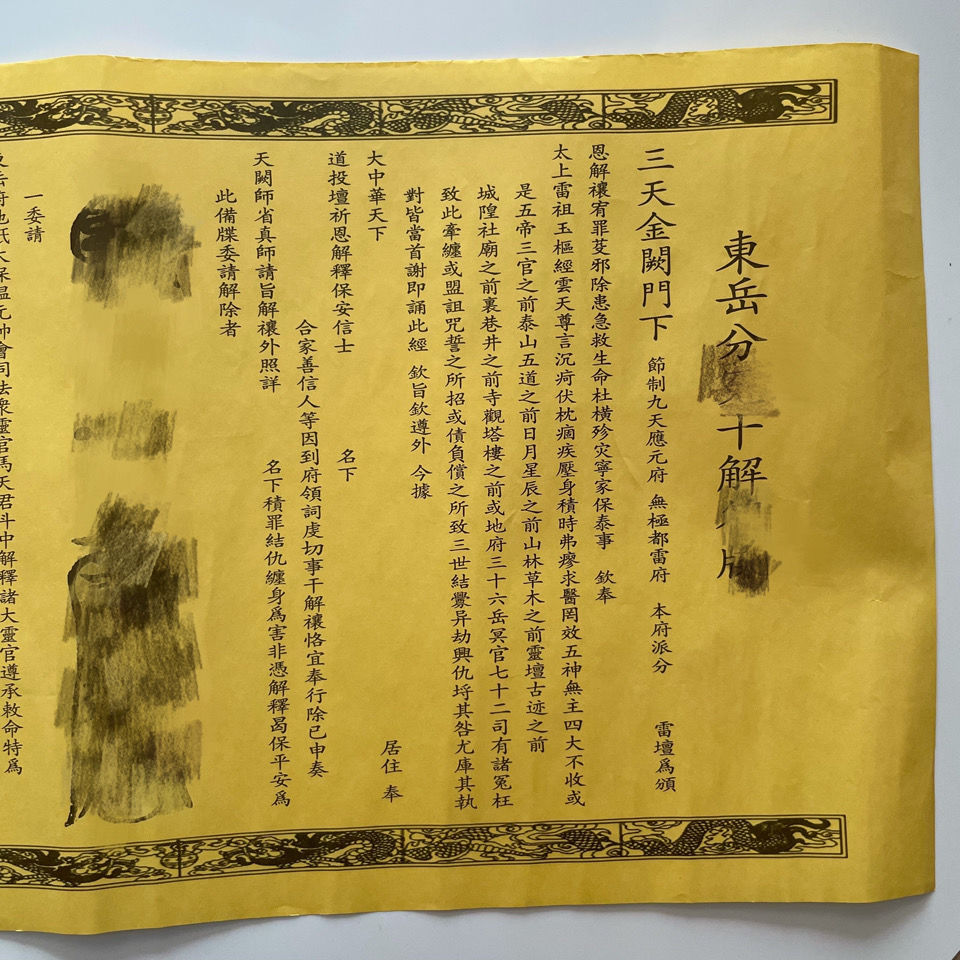 東岳分 十解
三天金闕門下 節制九天應元府 無極都雷府 本府派分 雷壇為頒
恩解禳宥罪芟邪除患急救生命杜橫殄灾寧家保泰事 欽奉
太上雷祖玉樞經雲天尊言沉疴伏枕痼疾壓身積時弗瘳求醫罔效五神無主四大不收或
是五帝三官之前泰山五道之前日月星辰之前山林草木之前靈壇古迹之前
城隍社廟之前裏巷井之前寺觀塔樓之前或地府三十六岳冥官七十二司有諸冤枉
致此牽纏或盟詛咒誓之所招或債負償之所致三世結釁异劫興仇埒其咎尤庫其執
對皆當首謝即誦此經 欽旨欽遵外 今據
大中華天下 居住 奉
道投壇祈恩解釋保安信士 名下
合家善信人等因到府領詞虔切事干解禳恪宜奉行除已申奏
天闕師省真師請旨解禳外照詳 名下積罪結仇纏身為害非憑解釋曷保平安為
此備牒委請解除者
一委請
岳府地祇太保温元帥會司法衆靈官馬天君斗中解釋諸大靈官遵承敕命特為